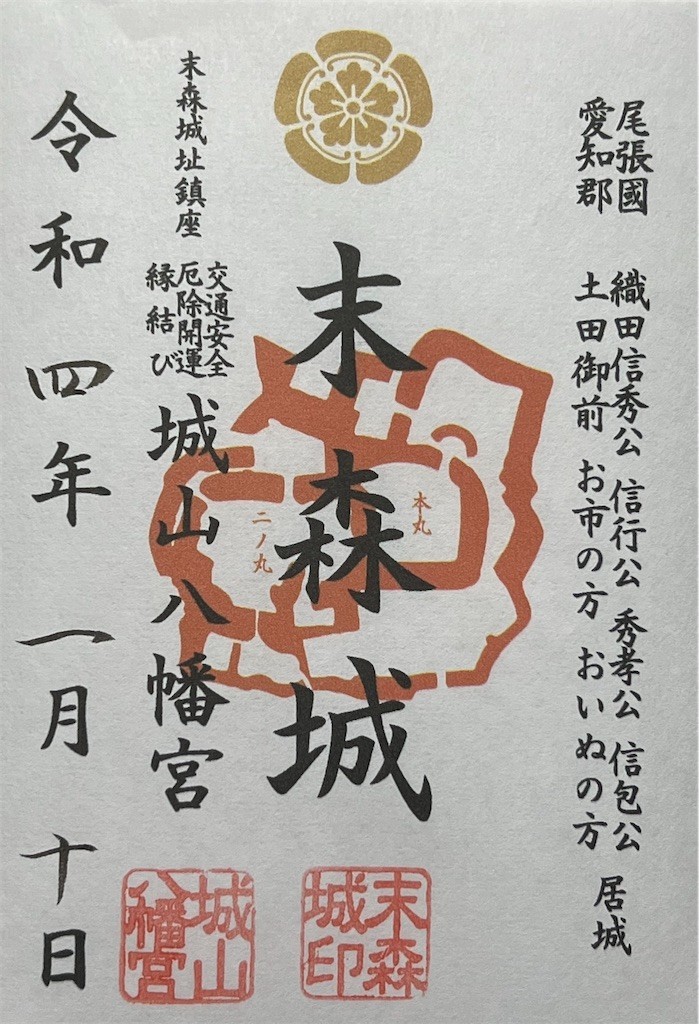 尾張國
愛知郡
織田信秀公 信行公 秀孝公 信包公
土田御前 お市の方 おいぬの方
居城
末森城
本丸
二ノ丸
末森城址鎮座
交通安全
厄除開運
縁結び
城山八幡宮
令和四年一月十日
末森
城印
城山
八幡宮